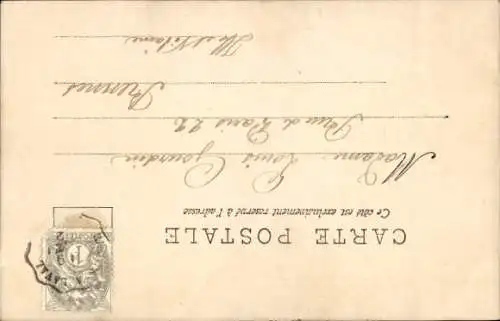 CARTE POSTALE
Ce côté est exclusivement réservé à l'adresse
Madame Louis Gourdin
Rue de Paris 22
Rennes
Ille et Vilaine
1
LAVAL